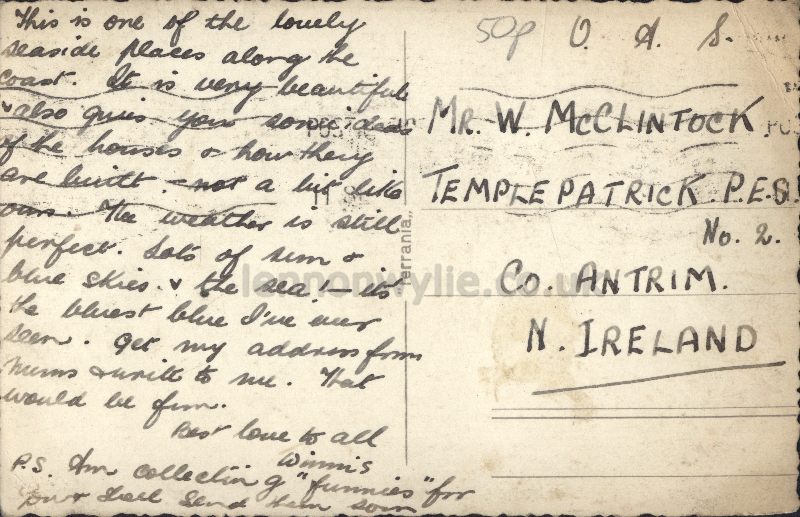 This is one of the lovely
seaside places along the
coast. It is very beautiful
& also gives you some idea
of the houses & how they
are built - not a bit like
ours. The weather is still
perfect. Lots of sun &
blue skies. & the sea! - it's
the bluest blue I've ever
seen. Get my address from
mums & write to me. That
would be fun.
Best love to all
Winnis
P.S. Am collecting "funnies" for
you & shall send them soon
errania
50p O. A. S.
MR. W. MCCLINTOCK
TEMPLEPATRICK. P.E.S.
No. 2.
Co. ANTRIM.
N. IRELAND
lennonwylie.co.uk